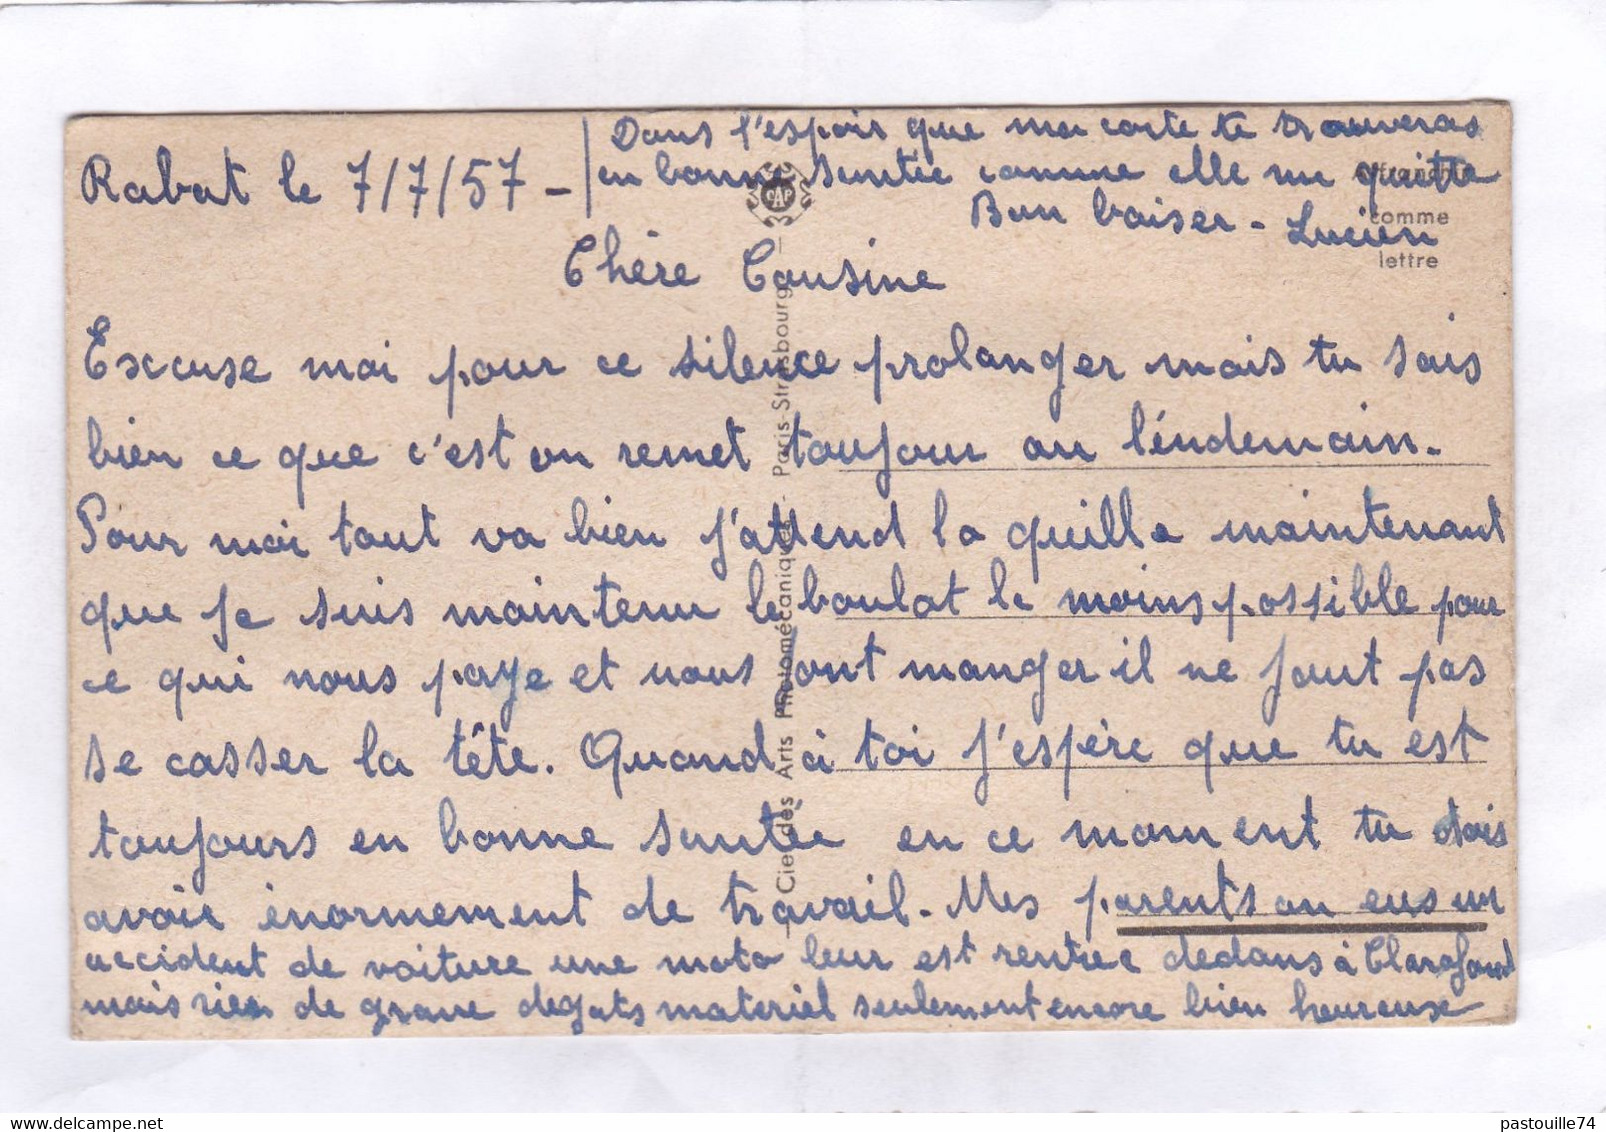 Rabat le 7/7/57 -
Dans l'espoir que ma carte te trouveras
en bonne santée comme elle me quitte
Bon baiser - Lucien
Affranchir
comme
lettre
Chère Cousine
Excuse moi pour ce silence prolanger mais tu sais
bien ce que c'est on remet toujour au léndemain.
Pour moi tout va bien j'attend la quille maintenant
que je suis maintenu le boulot le moins possible pour
ce qui nous paye et nous font manger il ne faut pas
se casser la tête. Quand à toi j'espère que tu est
toujours en bonne santée en ce moment tu dois
avoir énormement de travail. Mes parents on eus un
accident de voiture une moto leur est rentrée dedans à Clarafond
mais rien de grave degats materiel seulement encore bien heureuse
CAP
— Cie des Arts Photomécaniques - Paris-Strasbourg —
pastouille74